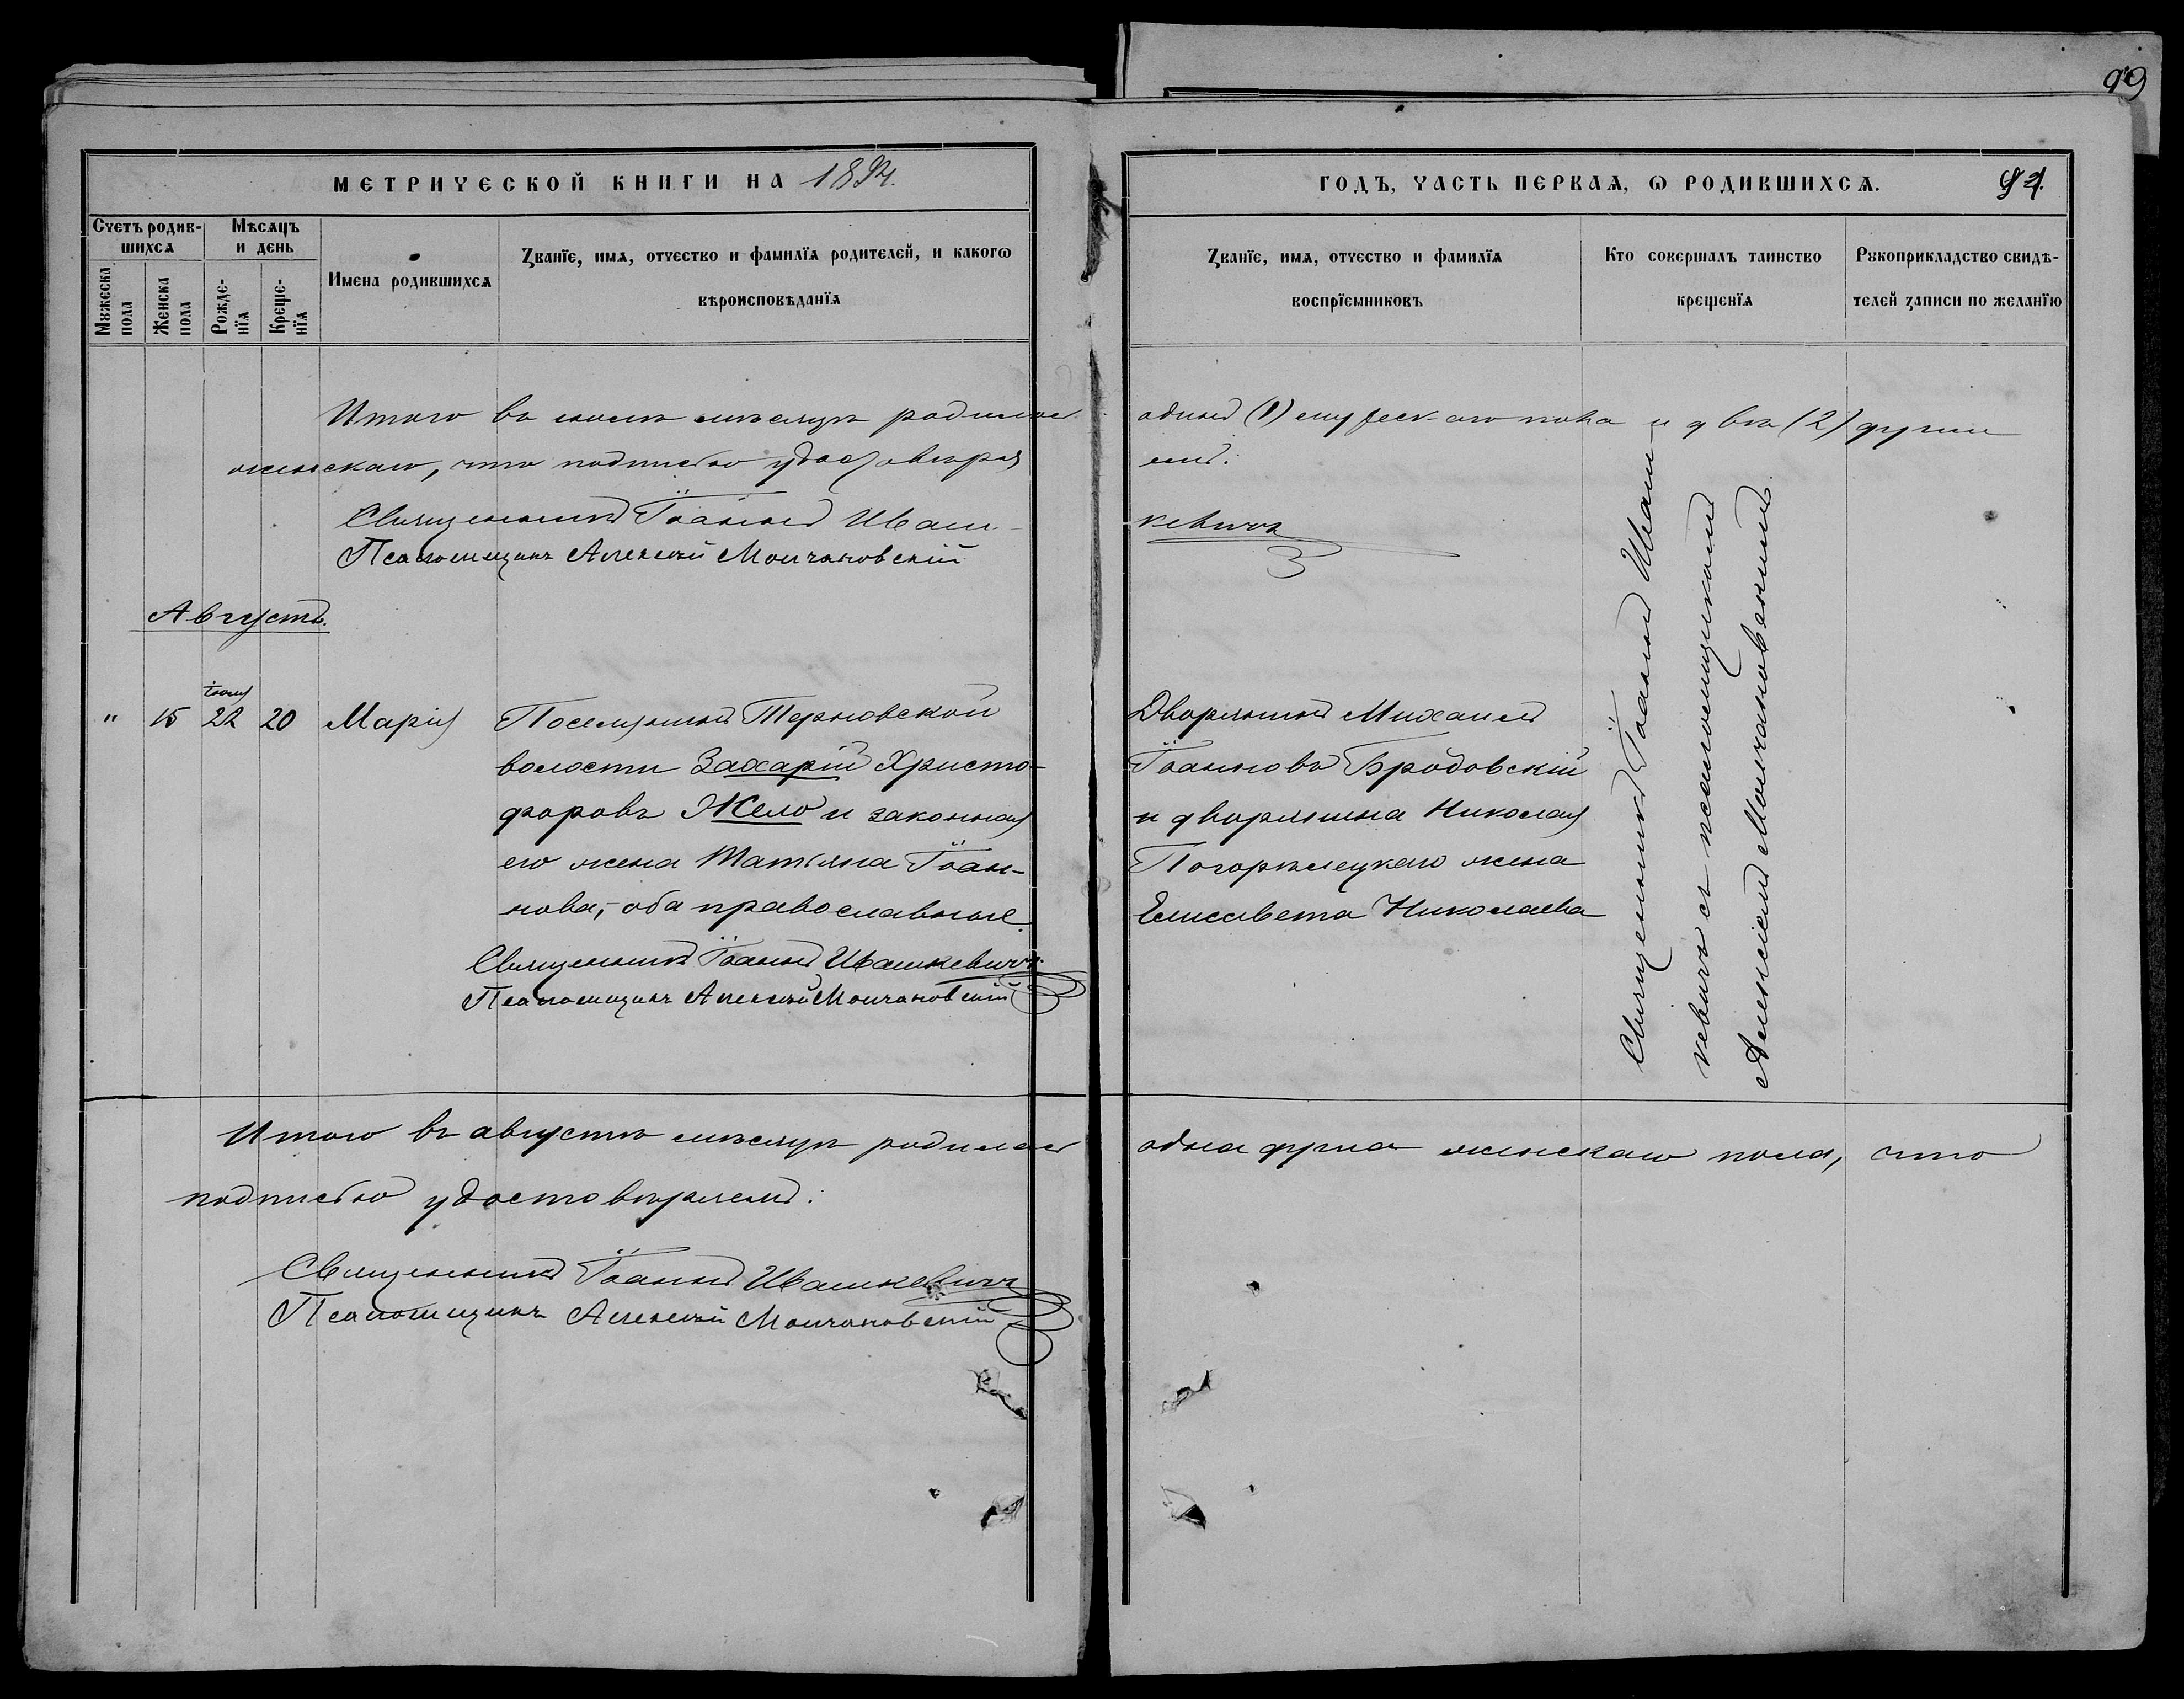 99
МЕТРИЧЕСКОЙ КНИГИ НА 1894.
ГОДЪ, ЧАСТЬ ПЕРВАѦ, Ѡ РОДИВШИХСѦ.
Счетъ родив-
шихсѧ
Мѣсѧцъ
и день
Имена родившихсѧ
Ꙁванїе, имѧ, отчество и фамилїѧ родителей, и какогѡ
вѣроисповѣданїѧ
Мꙋжеска
пола
Женска
пола
Рожде-
нїѧ
Креще-
нїѧ
Ꙁванїе, имѧ, отчество и фамилїѧ
воспрїемниковъ
Кто совершалъ таинство
крещенїѧ
Рꙋкоприкладство свидѣ-
телей ꙁаписи по желанїю
Итого въ іюлѣ мѣсяцѣ родилось одинъ (1) мужескаго пола и двѣ (2) души
женскаго, что подписью удостовѣряемъ.
Священникъ Іоаннъ Ивашкевичъ
Псаломщикъ Алексѣй Молчановскій
Августъ.
" 15 іюля 22 20 Марія
Поселянинъ Терновской
волости Захарій Христо-
форовъ Жело и законная
его жена Татьяна Іоан-
нова, - оба православные.
Священникъ Іоаннъ Ивашкевичъ
Псаломщикъ Алексѣй Молчановскій
Дворянинъ Михаилъ
Іоанновъ Бродовскій
и дворянина Николая
Погорѣлецкаго жена
Елисавета Николаева
Священникъ Іоаннъ Иваш-
кевичъ съ псаломщикомъ
Алексѣемъ Молчановскимъ.
Итого въ августѣ мѣсяцѣ родилась одна душа женскаго пола, что
подписью удостовѣряемъ:
Священникъ Іоаннъ Ивашкевичъ
Псаломщикъ Алексѣй Молчановскій